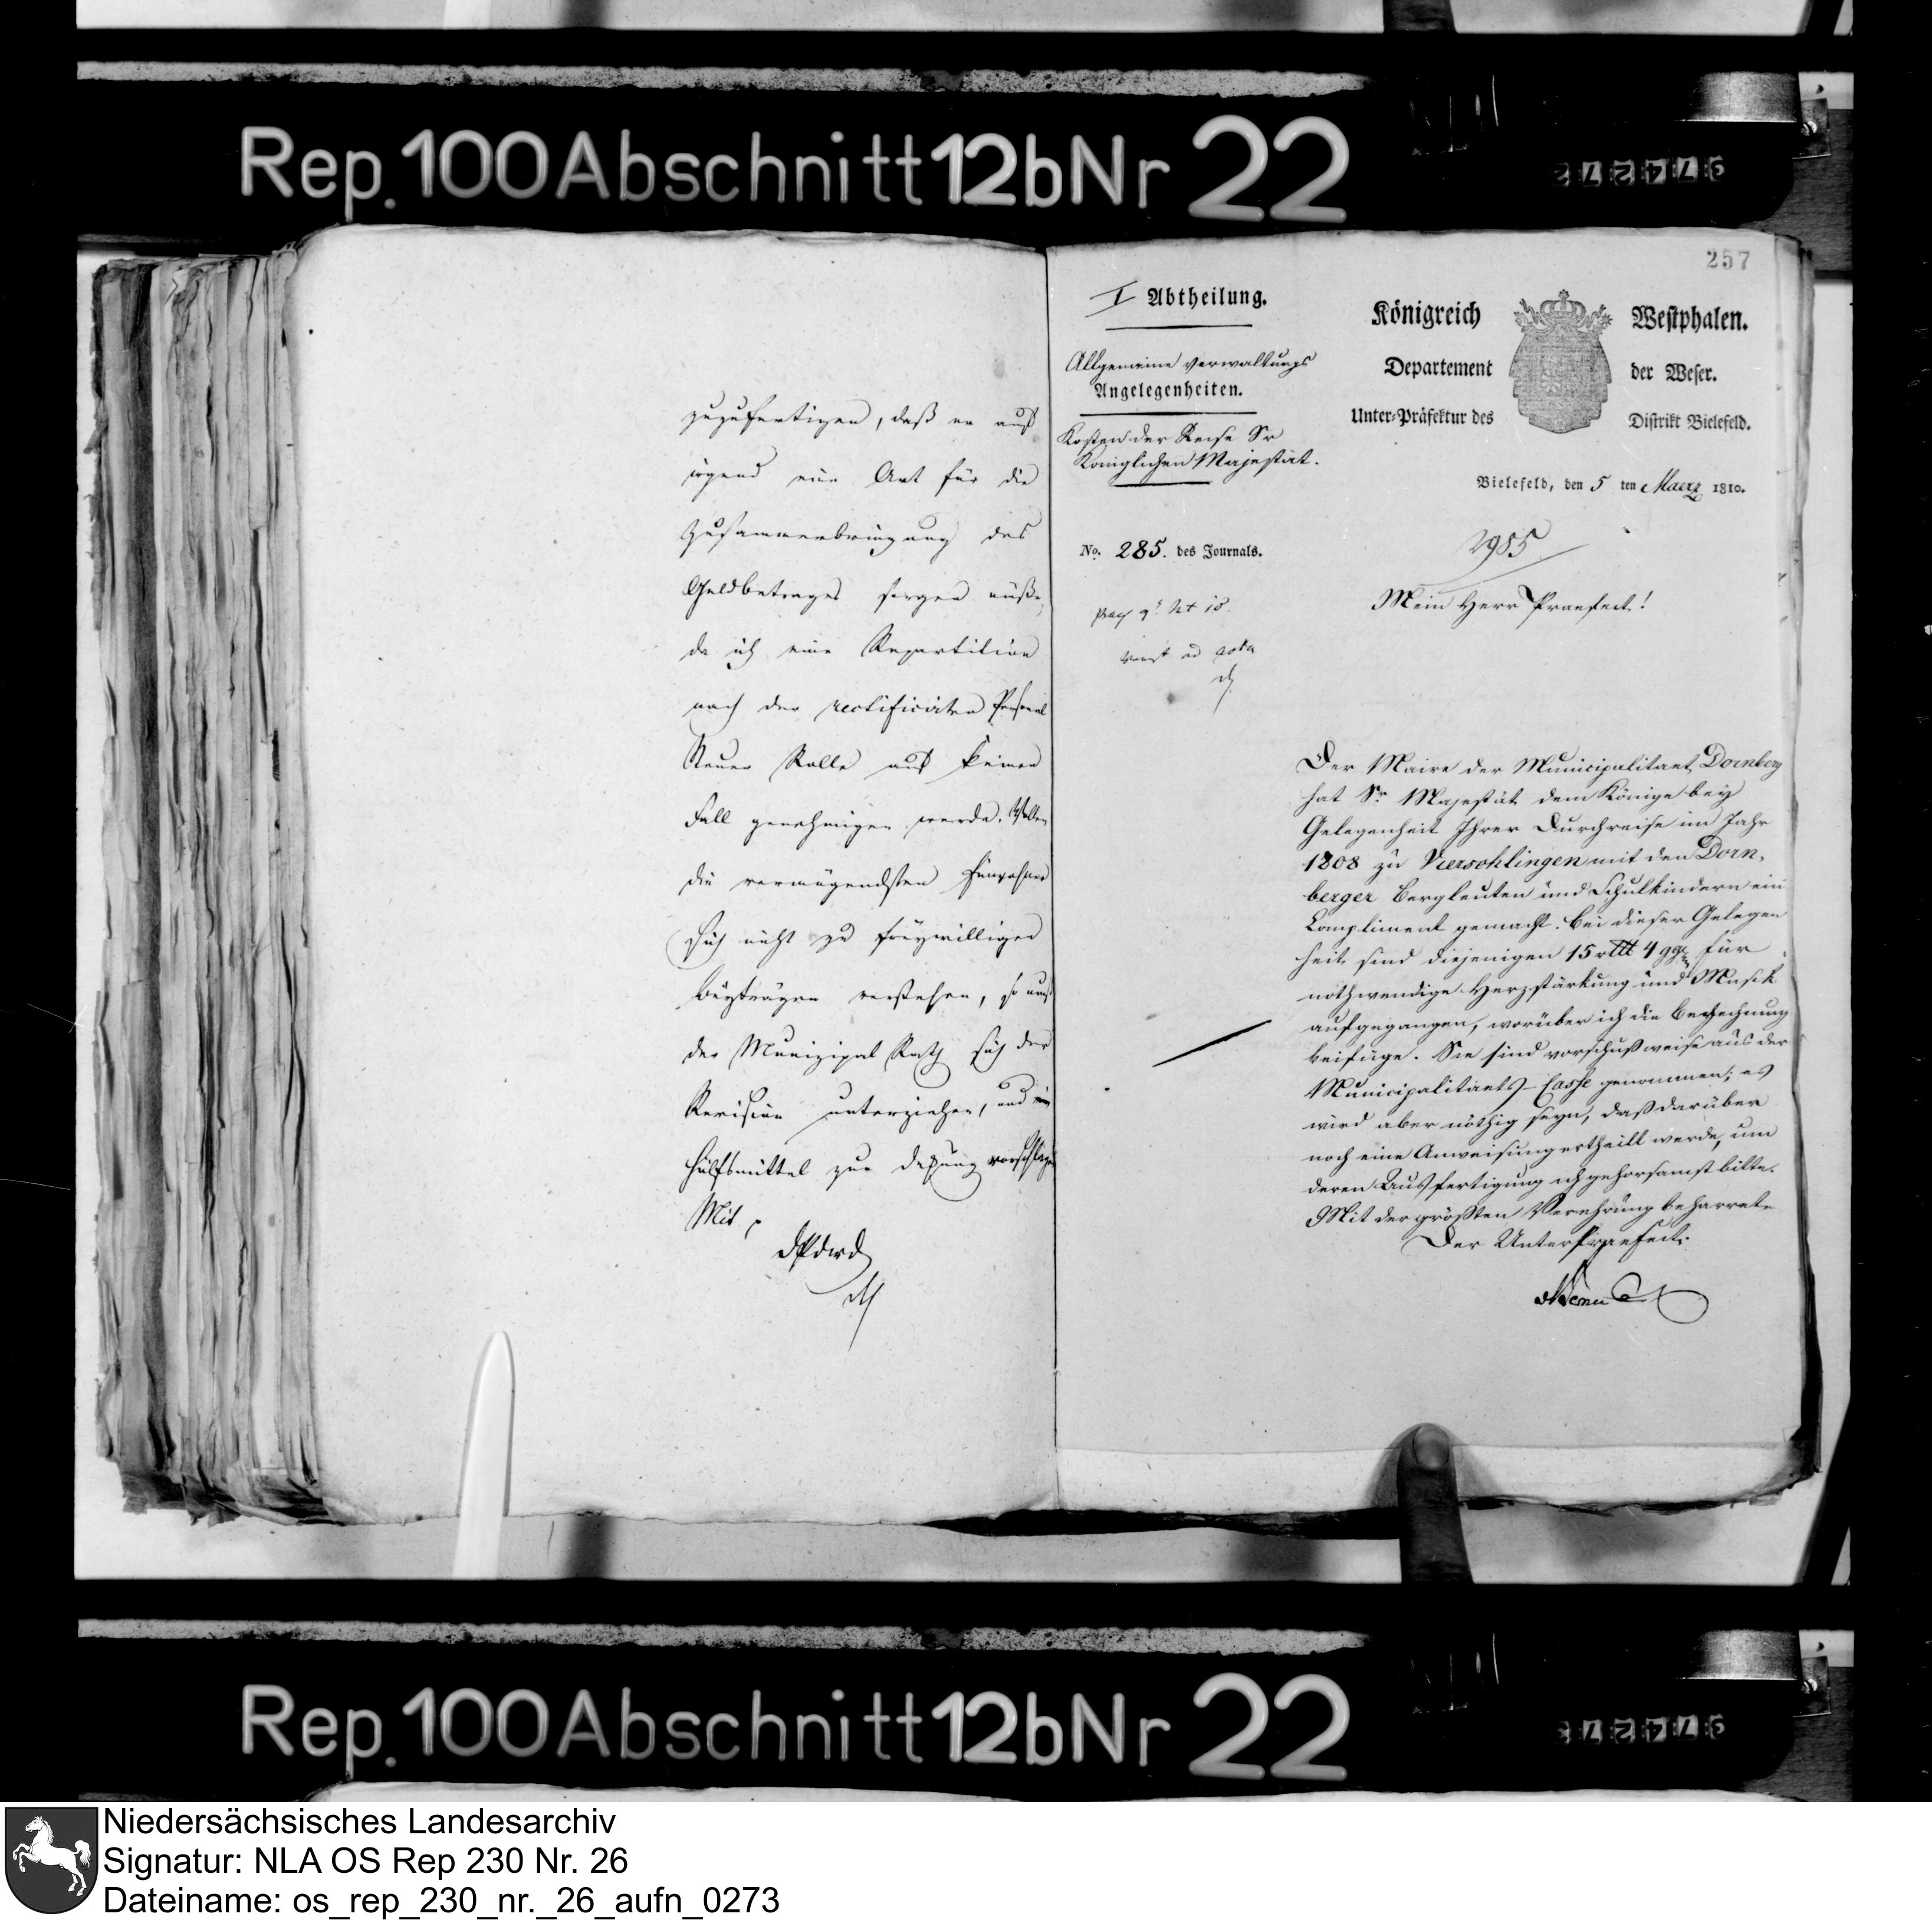 Rep. 100 Abschnitt 12b Nr 22
974272
zuzufertigen, daß er auf
irgend eine Art für die
Zusammenbringung des
Geldbetrages sorgen müße,
da ich eine Repartition
nach der rectificirten Personal
Steuer Rolle auf keinen
Fall genehmigen werde. Wollen
die vermögendsten Einwohner
sich nicht zu freywilligen
Beyträgen verstehen, so muß
der Munizipal Rath sich der
Revision unterziehen, und
Hülfsmittel zur Deckung vorschlagen
Mit
257
I Abtheilung.
Allgemeine Verwaltungs
Angelegenheiten.
Kosten der Reise Sr
Königlichen Majestät.
No. 285. des Journals.
Königreich Westphalen.
Departement der Weser.
Unter-Präfektur des Distrikt Bielefeld.
Bielefeld, den 5 ten Maerz 1810.
2955
Mein Herr Praefect!
Der Maire der Municipalitaet Dornberg
hat Sr. Majestät dem Könige bey
Gelegenheit Ihrer Durchreise im Jahr
1808 zu Viersohlingen mit den Dorn-
berger Bergleuten und Schulkindern ein
Compliment gemacht. Bei dieser Gelegen
heit sind diejenigen 15 rtlt 4 ggr für
nothwendige Herzstärkung und Musik
aufgegangen, worüber ich die Berechnung
beifüge. Sie sind vorschußweise aus der
Municipalitaets-Casse genommen; es
wird aber nöthig seyn, daß darüber
noch eine Anweisung ertheilt werde, um
deren Ausfertigung ich gehorsamst bitte.
Mit der größten Verehrung beharret
Der UnterPraefect.
Rep. 100 Abschnitt 12b Nr 22
974273
Niedersächsisches Landesarchiv
Signatur: NLA OS Rep 230 Nr. 26
Dateiname: os_rep_230_nr._26_aufn_0273